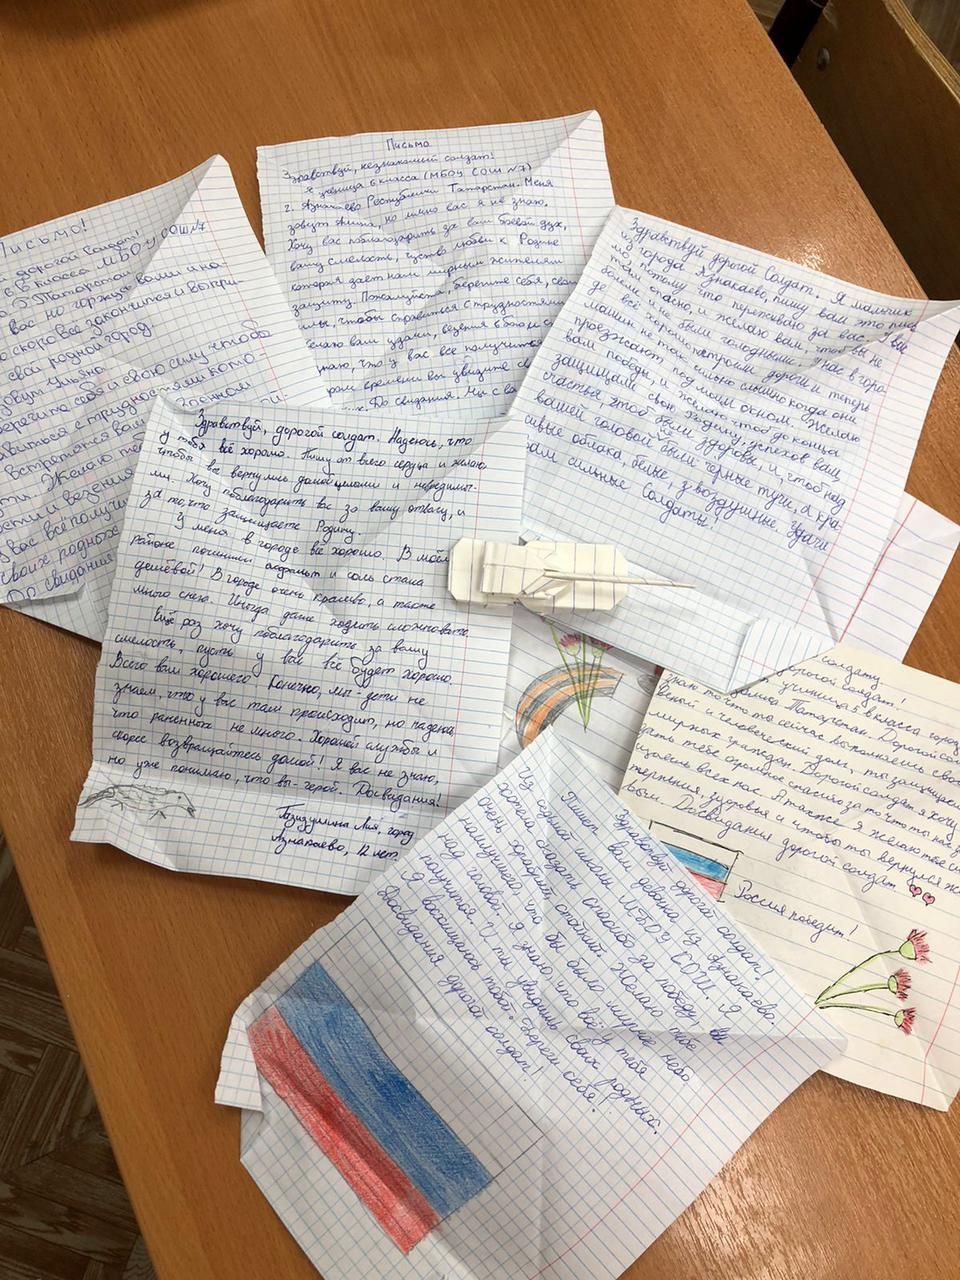 Письмо!
дорогой Солдат!
6 Б класса МБОУ СОШ №7
Татарстан.
вас но горжусь вами и на-
скоро всё закончится и вы при-
свой родной город.
зовут Ульяна
берегите себя и свою силу чтобы
справиться с трудностями кото-
встретятся вам в военном
Желаю
и везения
вас всё получи
своих родных
До свидания
Письмо
Здравствуй, незнакомый солдат!
Я ученица 6 класса (МБОУ СОШ №7)
г. Азнакаево Республики Татарстан. Меня
зовут но лично вас я не знаю.
Хочу вас поблагодарить за ваш боевой дух,
вашу смелость, чуство любви к Родине
которая дает нам мирным жителям
защиту. Пожалуйста, берегите себя, свои
чтобы справиться с трудностями
желаю вам удачи, везения в бою
знаю, что у вас все получится
времени вы увидите
До свидания. Мы с ва
Здравствуй дорогой Солдат. Я мальчик
из города Азнакаево, пишу вам это пись-
мо, потому что переживаю за вас. У вас
там опасно, и желаю вам, чтоб вы не
болели, и не были голодными. У нас в горо-
де всё хорошо, построили дороги и теперь
машин не так сильно слышно когда они
проезжают под моим окном. Желаю
вам победы, и желаю чтоб до конца
защищали свою Родину, успехов вам,
счастья, чтоб были здоровы, и, чтоб над
вашей головой были не черные тучи, а кра-
сивые облака, белые, воздушные. Удачи
вам сильные Солдаты!
Здравствуй, дорогой солдат. Надеюсь, что
у тебя всё хорошо. Пишу от всего сердца и желаю,
чтобы вы вернулись домой целыми и невредимы-
ми. Хочу поблагодарить вас за вашу отвагу, и
за то, что защищаете Родину.
У меня в городе всё хорошо. В моём
районе починили асфальт и соль стала
дешёвой! В городе очень красиво, а также
много снега. Иногда даже ходить сложновато.
Ещё раз хочу поблагодарить за вашу
смелость, пусть у вас всё будет хорошо.
Всего вам хорошего! Конечно, мы - дети не
знаем, что у вас там происходит, но надеюсь
что раненных не много. Хорошей службы и
скорее возвращайтесь домой! Я вас не знаю,
но уже понимаю, что вы - герой. Досвидания!
Лия, город
Азнакаево, 12 лет.
солдату
дорогой солдат!
учишая в класса города
Татарстан. Дорогой сол
знаю то что ты сейчас выполняешь свой
и человеческий долг, ты защищаешь
мирных граждан. Дорогой солдат я хочу
дать тебе огромное спасибо за то что ты нас
щаешь всех нас. А также я желаю тебе
терпения, здоровья и чтобы ты вернулся жи-
вым. Досвидания дорогой солдат
Россия победит!
Здравствуй дорогой солдат!
Пишет вам девочка из Азнакаево.
Из седьмой школы МБОУ СОШ. Я
хотела сказать спасибо за победу вы
очень храбрый стойкий. Желаю тебе
наилучшего, что бы было мирное небо
над головой. Я знаю что всё у тебя
получится. И ты увидишь своих родных.
Я восхищаюсь тобой. Береги себя!
Досвидания дорогой солдат!